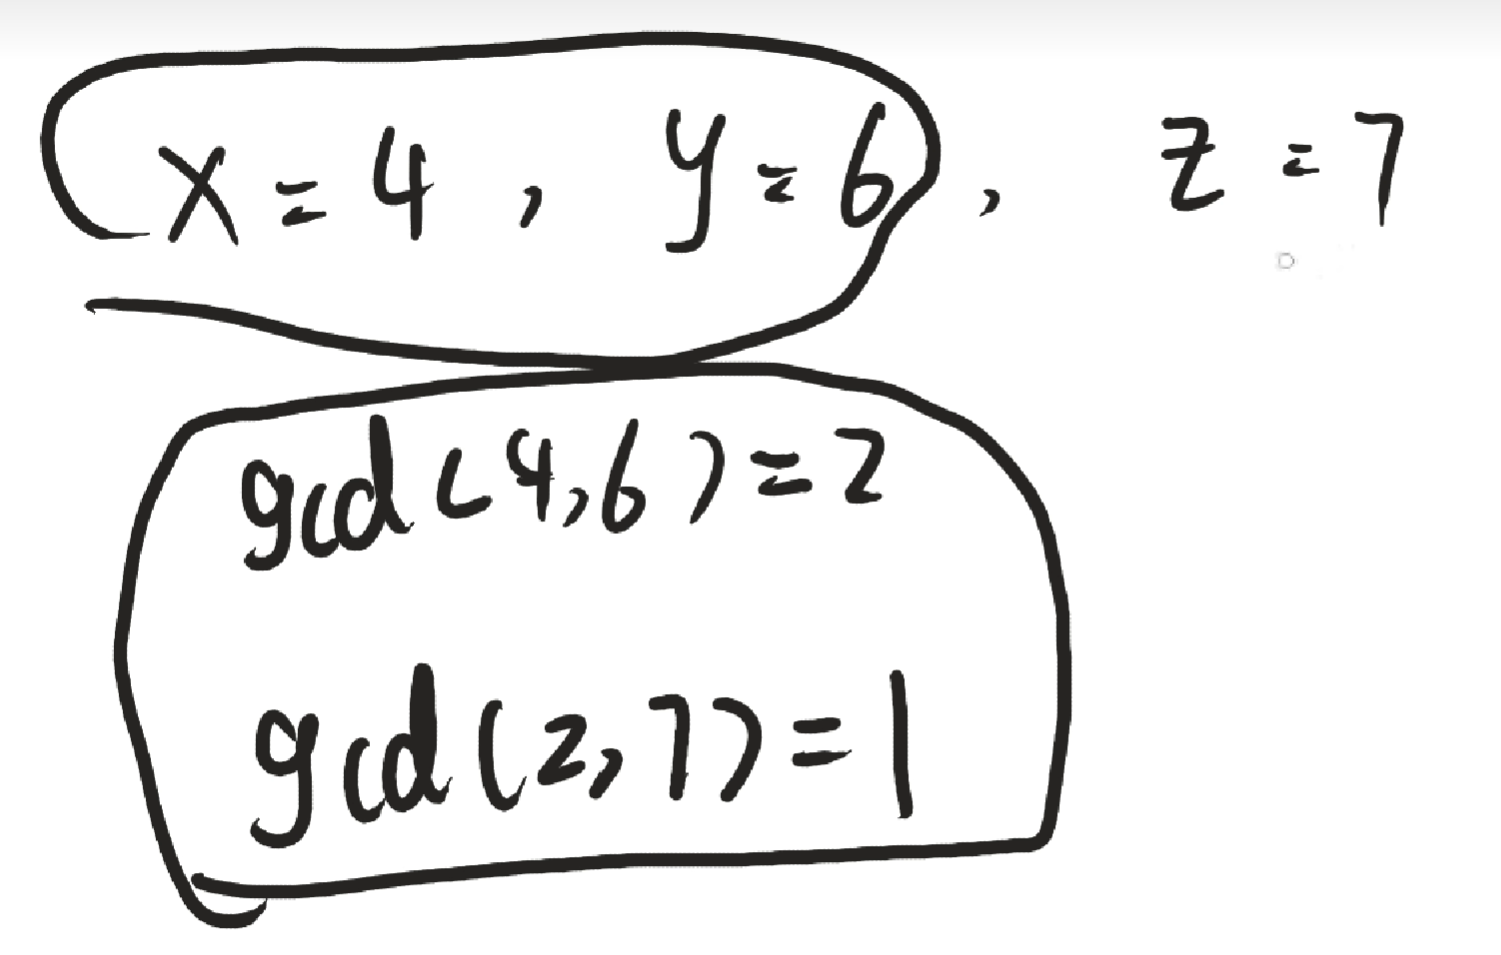 x = 4 , y = 6 , z = 7
gcd (4,6) = 2
gcd (2,7) = 1